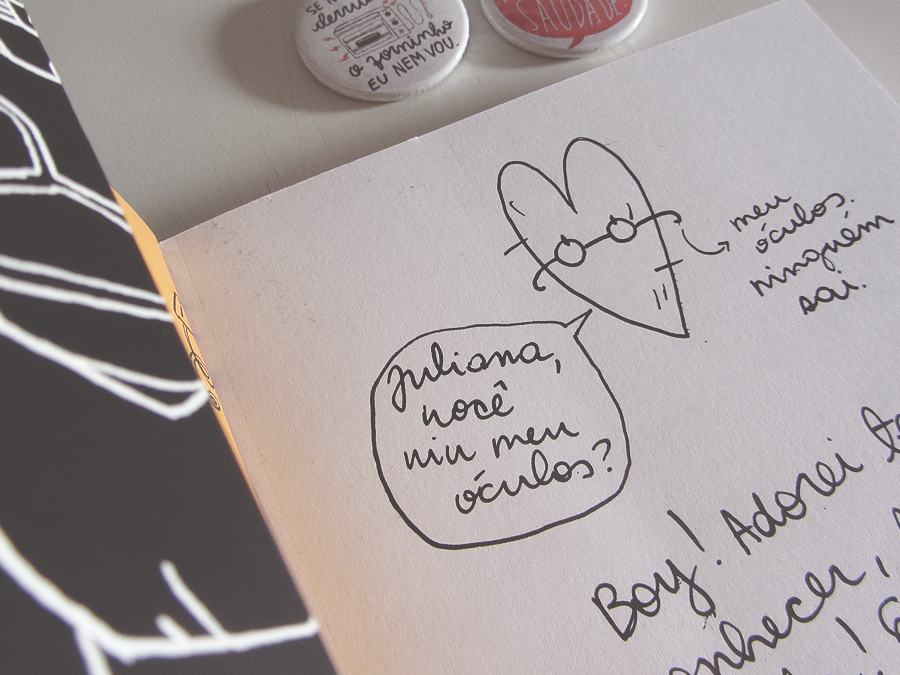 SE N
derruba
o forninho
EU NEM VOU.
SAUDADE.
meu
óculos.
ninguém
sai.
Juliana,
você
viu meu
óculos?
Boy! Adorei